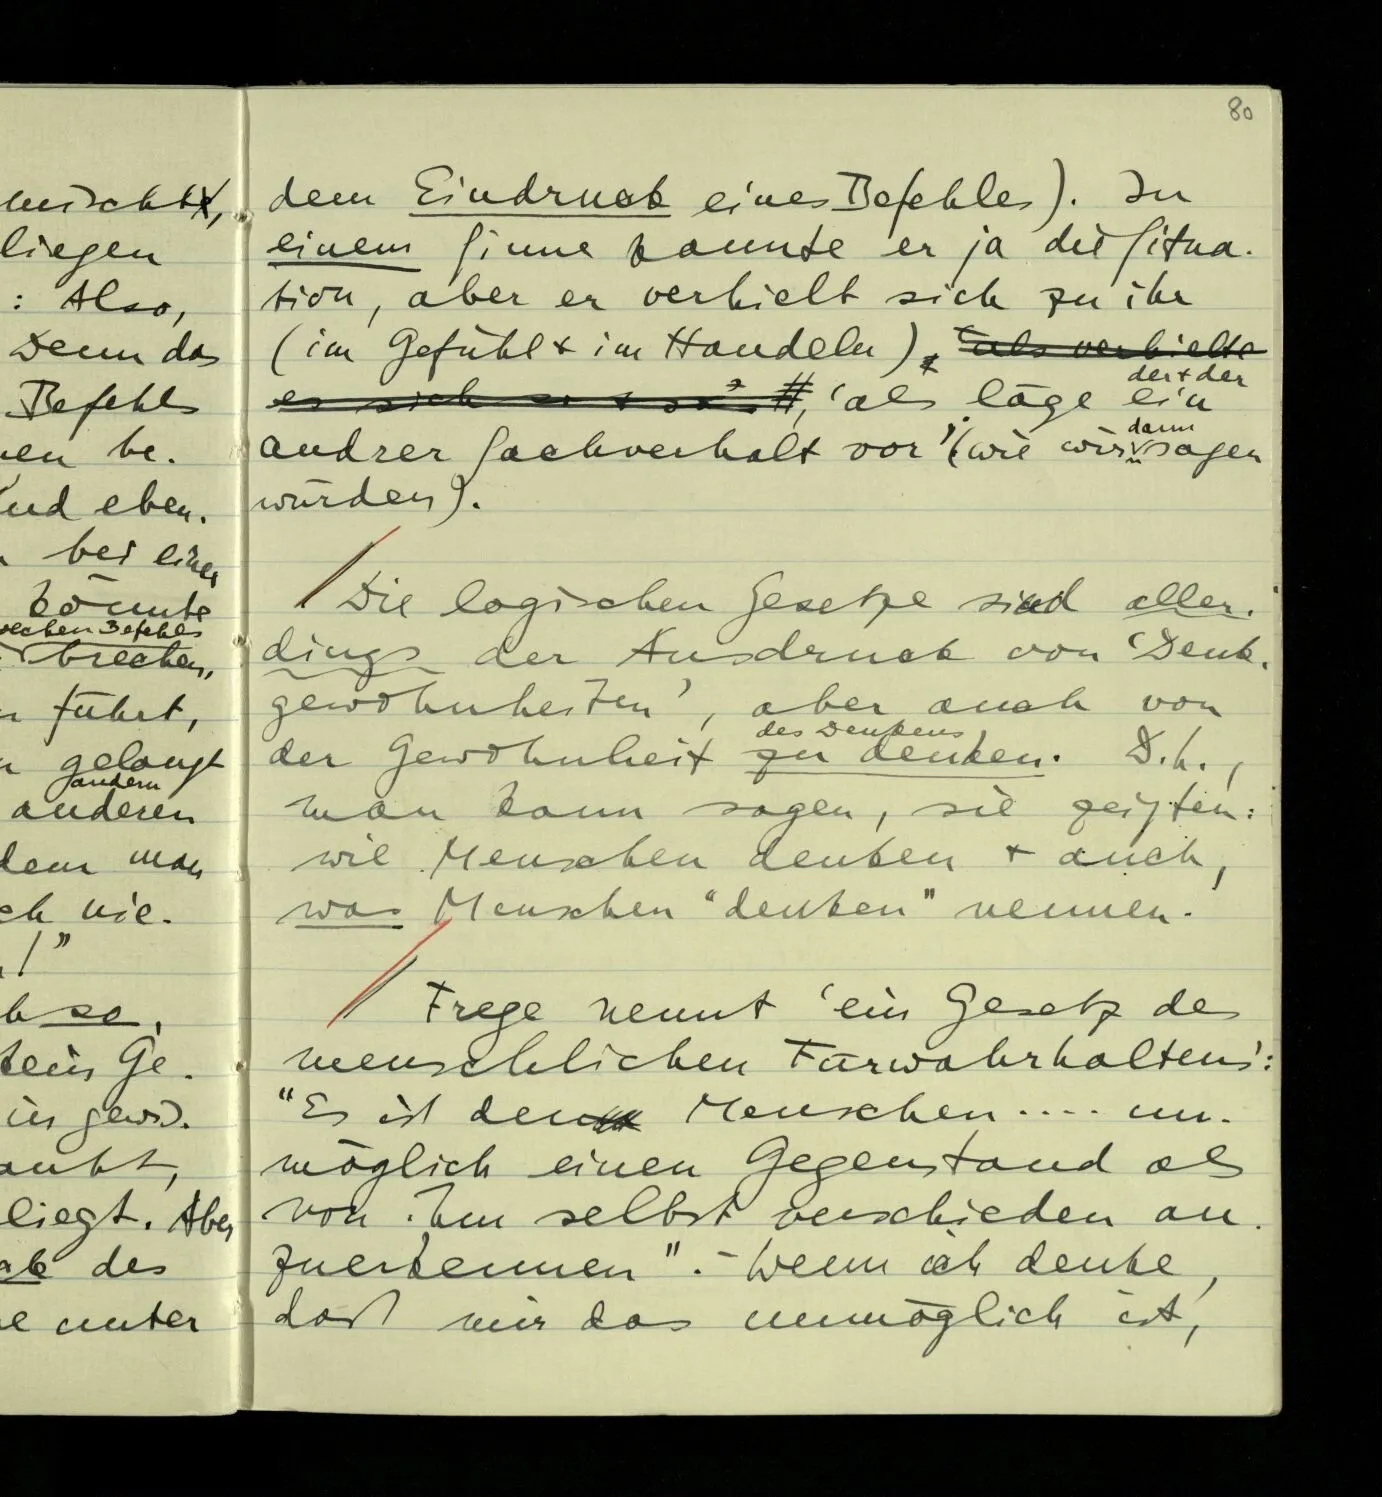 mischt,
liegen
: Also,
Denn das
Befehls
nen be-
Und eben-
bei einer
könnte
brechen,
führt,
gelangt
andern
anderen
dem man
ch nie-
!"
so,
kein Ge-
in gewis-
aubt,
liegt. Aber
des
unter
80
dem Eindruck eines Befehles). In
einem Sinne kannte er ja die Situa-
tion, aber er verhielt sich zu ihr
(im Gefühl & im Handeln), als verhielte
es sich so & so, 'als läge ein
der & der
andrer Sachverhalt vor' (wie wir sagen
dann
würden).
Die logischen Gesetze sind aller-
dings der Ausdruck von 'Denk-
gewohnheiten', aber auch von
der Gewohnheit zu denken. D.h.,
des Denkens
man kann sagen, sie zeigten:
wie Menschen denken + auch,
was Menschen "denken" nennen.
Frege nennt 'ein Gesetz des
menschlichen Fürwahrhaltens':
"Es ist den Menschen .... un-
möglich einen Gegenstand als
von ihm selbst verschieden an-
zuerkennen". – Wenn ich denke,
daß mir das unmöglich ist,